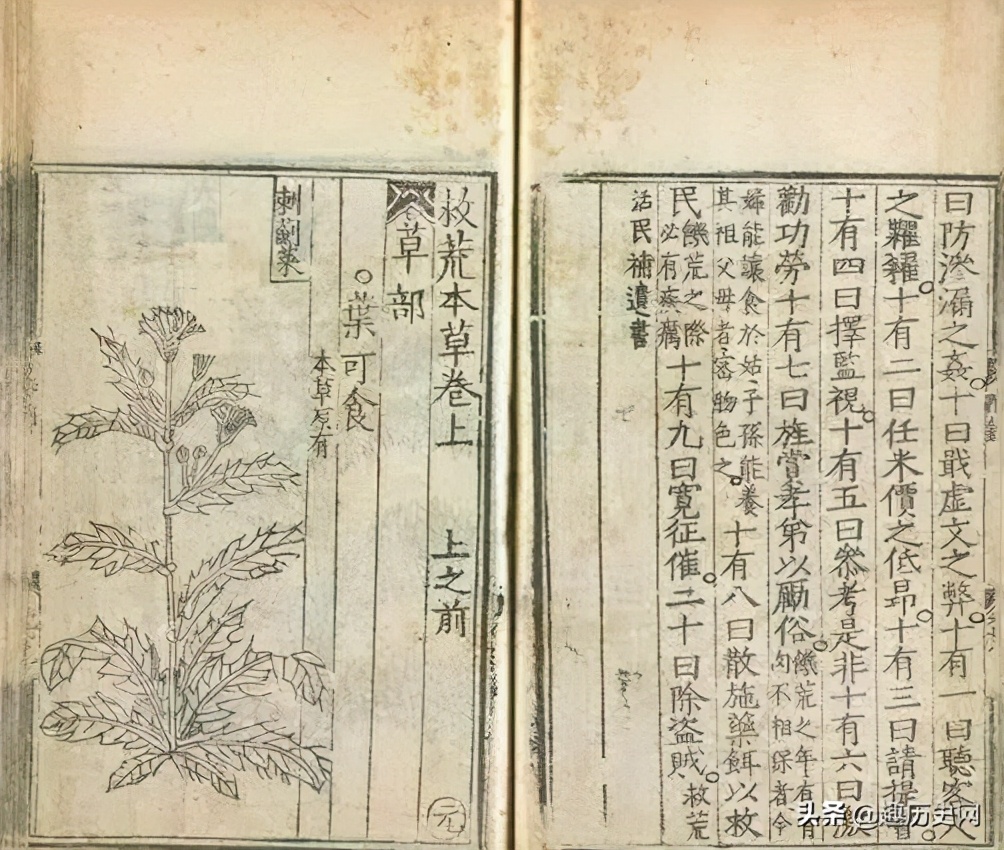 曰防滲漏之姦十曰戢虛文之弊十有一曰聽客人
之糶糴十有二曰任米價之低昂十有三曰請提
十有四曰擇監視十有五曰參考是非十有六曰激
勸功勞十有七曰旌賞孝弟以勵俗饑荒之年有
肉不相保者令
能讓食於姑子孫能養
其祖父母者密物色之十有八曰散施藥餌以救
民饑荒之際
必有疾癘十有九曰寬征催二十曰除盜賊救荒
活民補遺書
救荒本草卷上 上之前
草部
葉可食
本草原有
刺薊菜
元
头条 @趣历史网